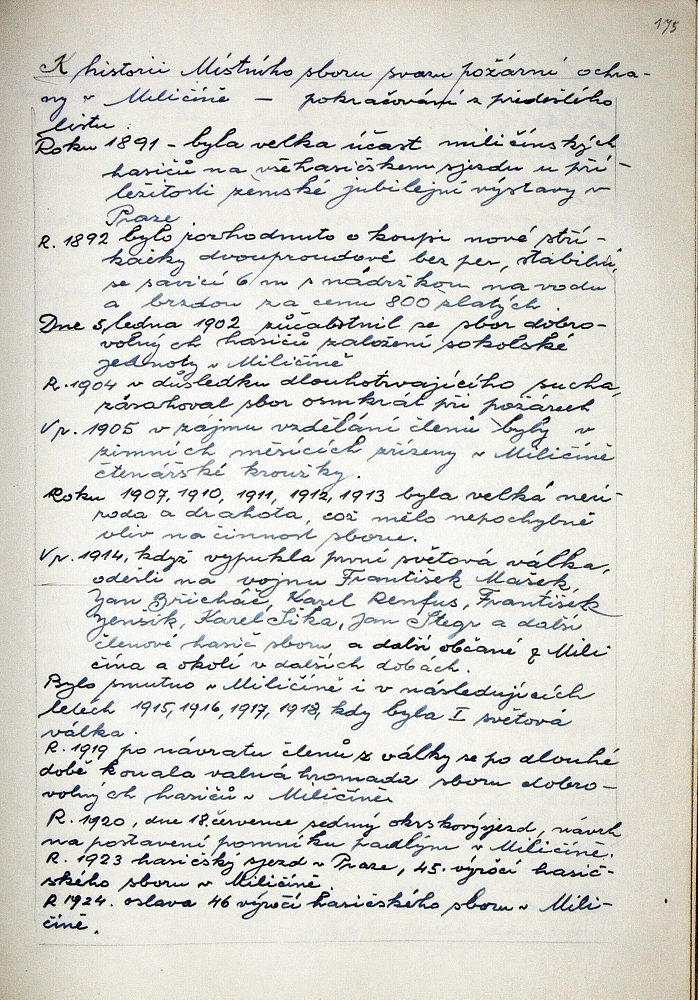 175
K historii Místního sboru svazu požární ochra-
ny v Miličíně — pokračování z předešlého
listu
Roku 1891 - byla velká účast miličínských
hasičů na všehasičském sjezdu u pří-
ležitosti zemské jubilejní výstavy v
Praze
R. 1892 bylo rozhodnuto o koupi nové stří-
kačky dvouproudové bez per, stabilní,
se savicí 6 m s nádržkou na vodu
a brzdou za cenu 800 zlatých.
Dne 5, ledna 1902 zúčastnil se sbor dobro-
volných hasičů založení sokolské
jednoty v Miličíně
R. 1904 v důsledku dlouhotrvajícího sucha,
zasahoval sbor osmkrát při požárech
V r. 1905 v zájmu vzdělání členů byly v
zimních měsících zřízeny v Miličíně
čtenářské kroužky.
Roku 1907, 1910, 1911, 1912, 1913 byla velká neú-
roda a drahota, což mělo nepochybně
vliv na činnost sboru.
V r. 1914, když vypukla první světová válka,
odešli na vojnu František Mašek,
Jan Břicháč, Karel Renfus, František
Jensík, Karel Sika, Jan Stegr a další
členové hasič sboru, a další občané z Mili
čína a okolí v dalších dobách.
Bylo smutno v Miličíně i v následujících
letech 1915, 1916, 1917, 1918, kdy byla I světová
válka.
R. 1919 po návratu členů z války se po dlouhé
době konala valná hromada sboru dobro-
volných hasičů v Miličíně
R. 1920, dne 18. července sedmý okrskový sjezd, návrh
na postavení pomníku padlým v Miličíně.
R. 1923 hasičský sjezd v Praze, 45. výročí hasič-
ského sboru v Miličíně.
R 1924. oslava 46 výročí hasičského sboru v Mili-
číně.